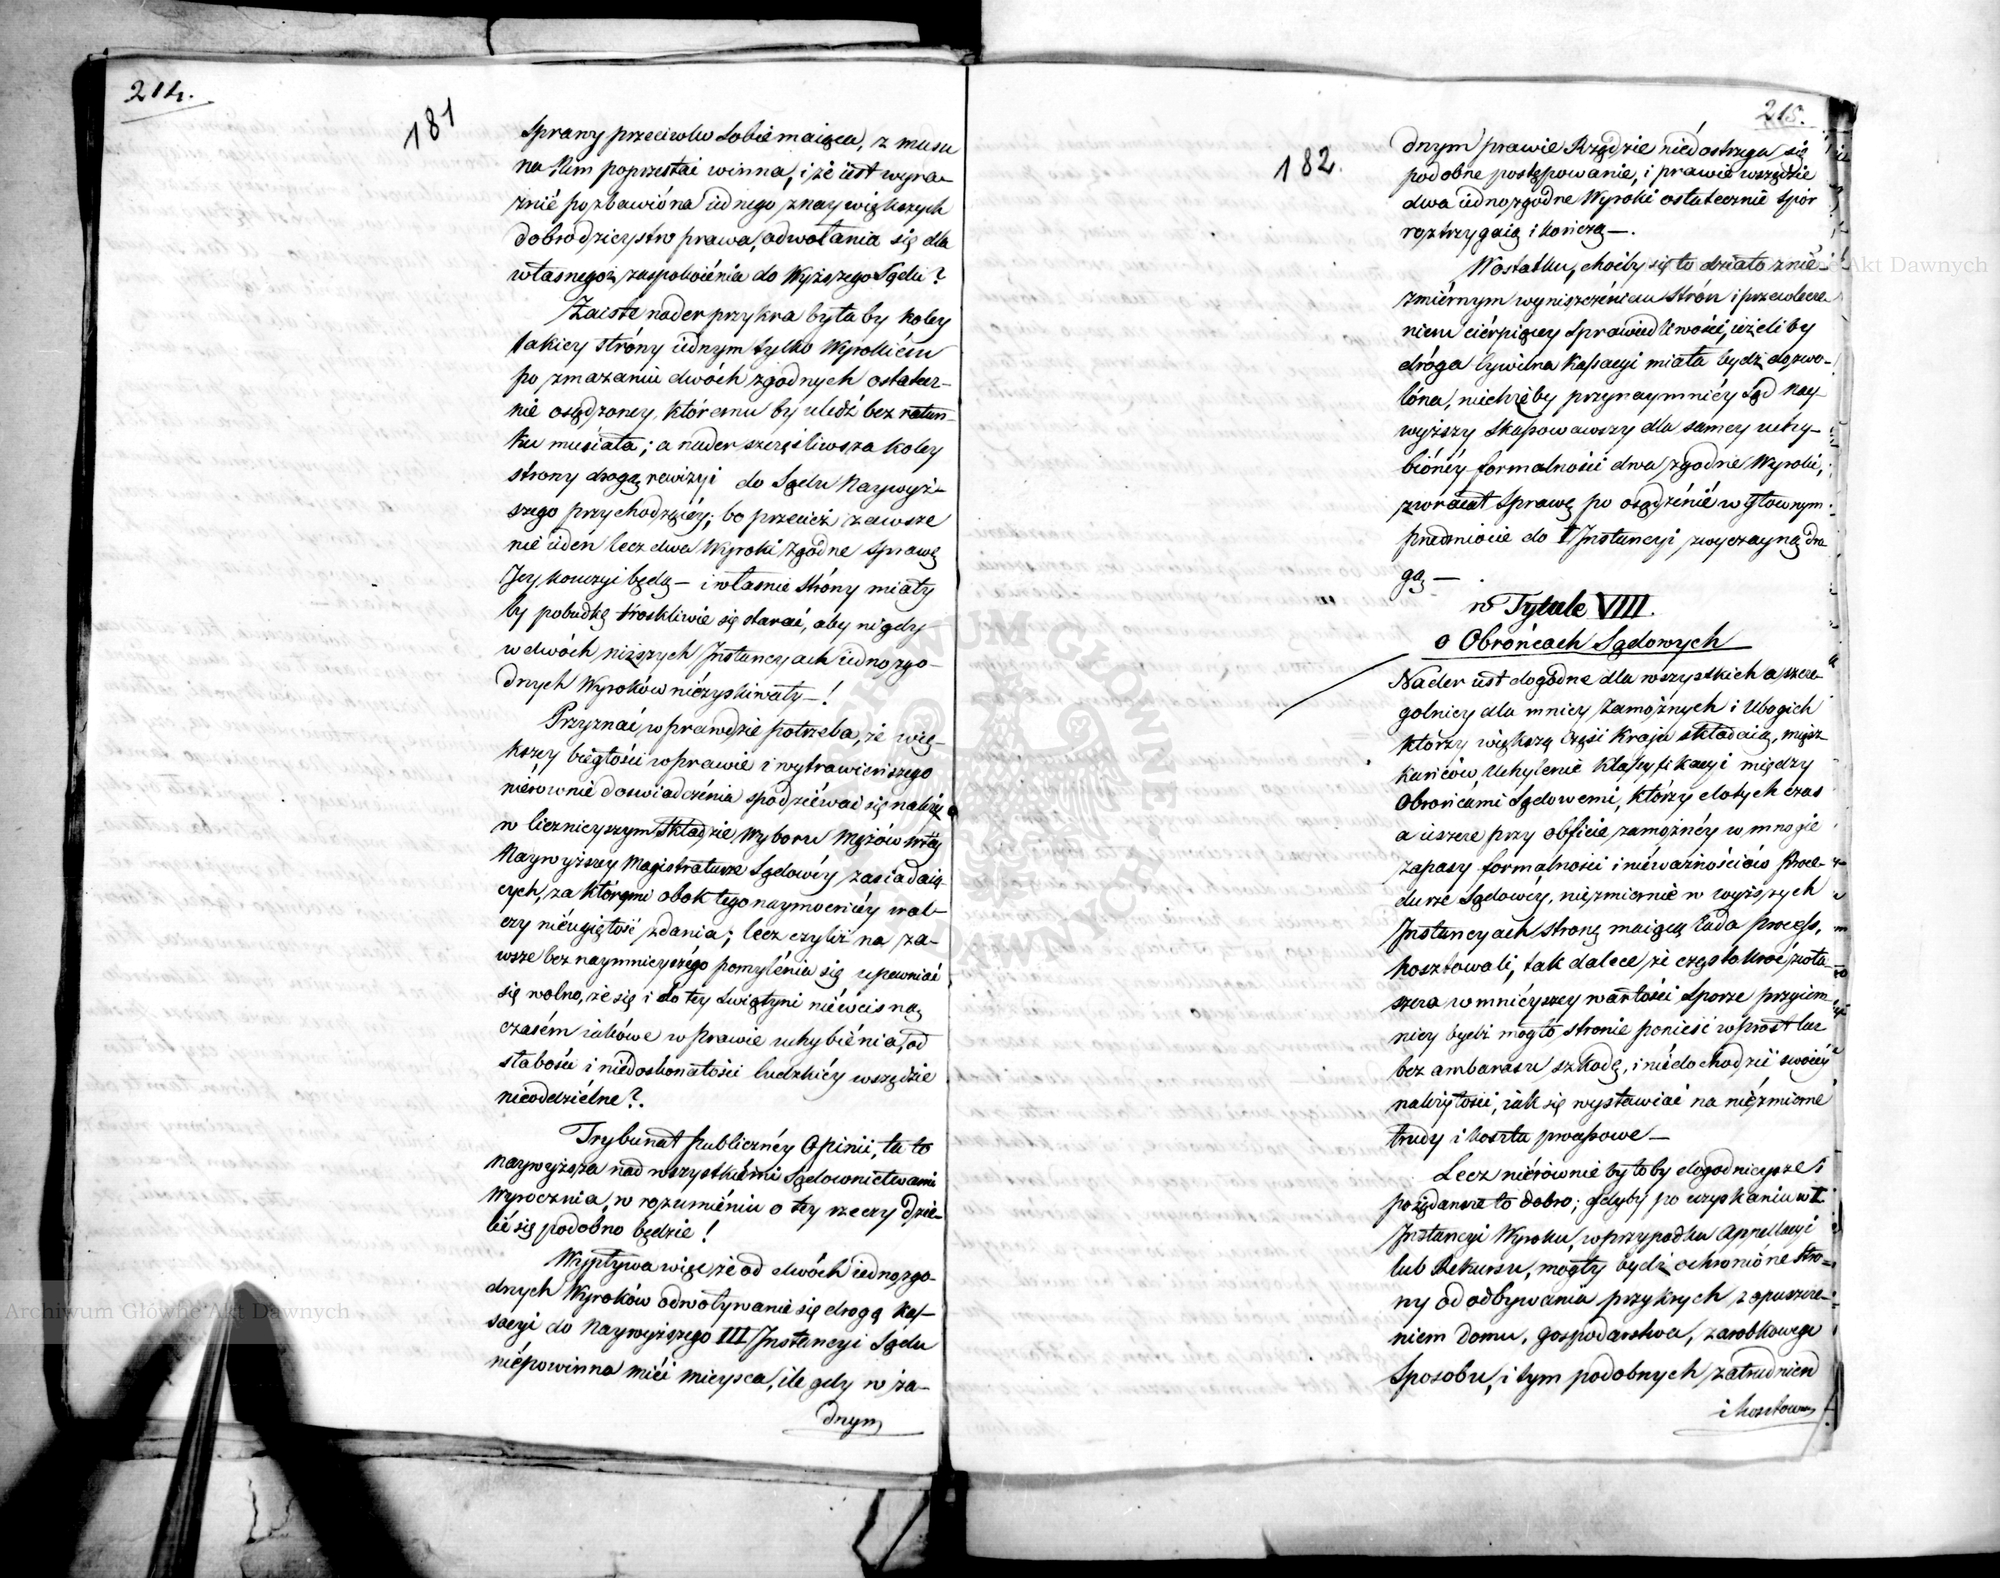 214.
181
sprawy przeciwko sobie maiąca, z musu
na Nim poprzestać winna, i że iest wyra-
źnie pozbawióna iednego z naywiększych
dobrodzieystw prawa, odwołania się dla
własnego zaspokoiénia do Wyższego Sądu?
Zaiste nader przykra byłaby koley
takiey stróny iednym tylko Wyrokiem
po zmazaniu dwóch zgodnych ostatecz-
nie osądzoney, któremu by uledź bez ratun-
ku musiała; a nader szczęśliwsza koley
strony drogą rewizyi do Sądu Naywyż-
szego przychodzącéy; bo przecież zawsze
nie ieden lecz dwa Wyroki zgodne sprawę
Jey kończyć będą — i własnie stróny miały
by pobudkę troskliwie się starać, aby nigdy
w dwóch niższych Instancyach iednozgo-
dnych Wyroków nieżyskiwały —!
Przyznać wprawdzie potrzeba, że wię-
kszey biegłości w prawie i wytrawieńszego
nierównie doswiadczénia spodziéwać się należy
w licznieyszym składzie Wyboru Mężów w téy
Naywyższey Magistraturze Sądowéy zasiadaią-
cych, za któremi obok tego naymocniéy wal-
czy nieugiętość zdania; lecz czyliż na za-
wsze bez naymnieyszégo pomylénia się upewniać
się wolno, że się i do tey Swiątyni niewcisną
czasém iakówe w prawie uchybiénia, od
słabości i niedoskonałości ludzkiéy wszędzie
nieoddziélne?.
Trybunał publicznéy Opinii, ta to
naywyższa nad wszystkiémi Sądownictwami
Wyrocznia, w rozumiéniu o tey rzeczy dzie-
lić się podobno będzie!
Wypływa więc, że od dwóch iednozgo-
dnych Wyroków odwoływanie się drogą Kas-
sacyi do Naywyższego III Instancyi Sądu
niepowinno mieć mieysca, ile gdy w ża-
dnym
215.
182.
dnym prawie Rządzie niedostrzega się
podobne postępowanie, i prawie wszędzie
dwa iednozgodne Wyroki ostatecznie spór
roztrzygaią i kończą —.
Wostatku, choćby się to działo z nie-
zmiérnym wyniszczéniem Strón i przewlecze-
niem ciérpiącey Sprawiedliwości, ieżeliby
dróga cywilna Kassacyi miała bydź dozwo-
lóna, niechżeby przynaymniéy Sąd Nay-
wyższy skassowawszy dla samey uchy-
bionéy formalności dwa zgodne Wyroki,
zwracał Sprawę po osądzénié w głownym
przedmiocie do I Instancyi zwyczayną dro
gą —
w Tytule VIII.
o Obrońcach Sądowych
Nader iest dogodne dla wszystkich a szcze-
golniey dla mniey Zamożnych i Ubogich
którzy większą część Kraju składaią, miesz-
kańców, uchylenie Klassyfikacyi między
Obrońcami Sądowemi, którzy dotych czas
a ieszcze przy obficie zamożnéy w mnogie
zapasy formalności i nieważnościów Proce-
durze Sądowéy, niezmiernie w wyższych
Instancyach stronę maiącą Rada process,
kosztowali, tak dalece że częstokroć zwła-
szcza w mniéyszey wartości Sporze przyiem
niey bydź mogło stronie ponieść wprost lecz
bez ambarasu szkodę, i niedochodzić swoiéy
należytości, iak się wystawiać na niezmiérne
trudy i koszta processowe —
Lecz nierównie byłoby dogodnieysze i
pożądańsze to dobro; gdyby po uzyskaniu w I
Instancyi Wyroku, w przypadku Appellacyi
lub Rekursu, mogły bydź ochronióne stro-
ny od odbywania przykrych z opuszcze-
niem domu, gospodarstwa, zarobkowego
Sposobu, i tym podobnych zatrudnień
i kosztown